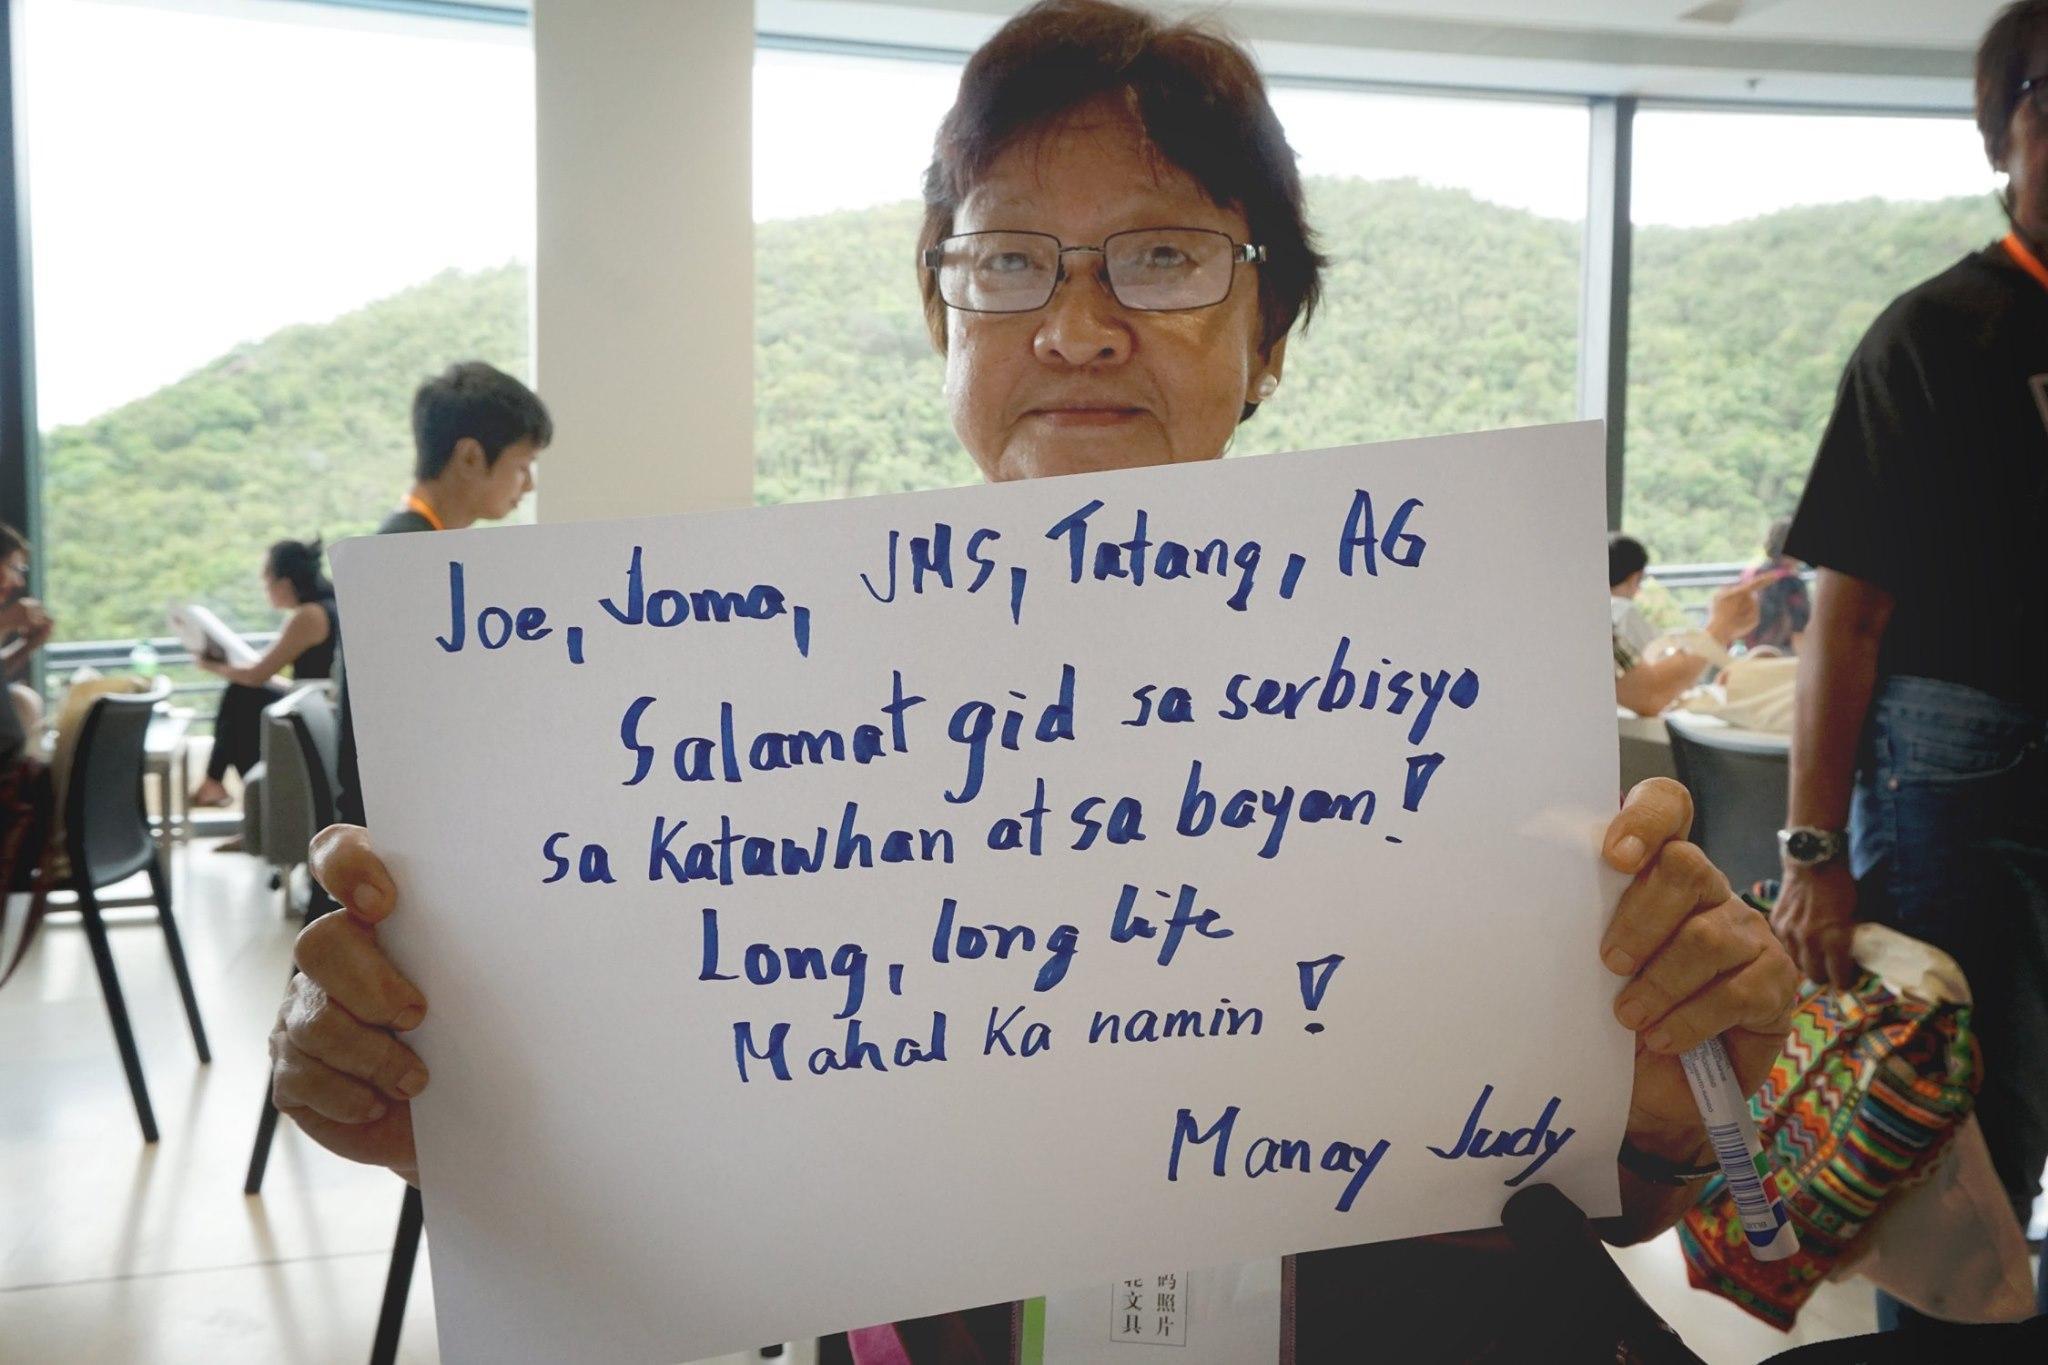 Joe, Joma, JMS, Tatang, AG
Salamat gid sa serbisyo
sa Katawhan at sa bayan!
Long, long life
Mahal Ka namin!
Manay Judy
码照片
文具